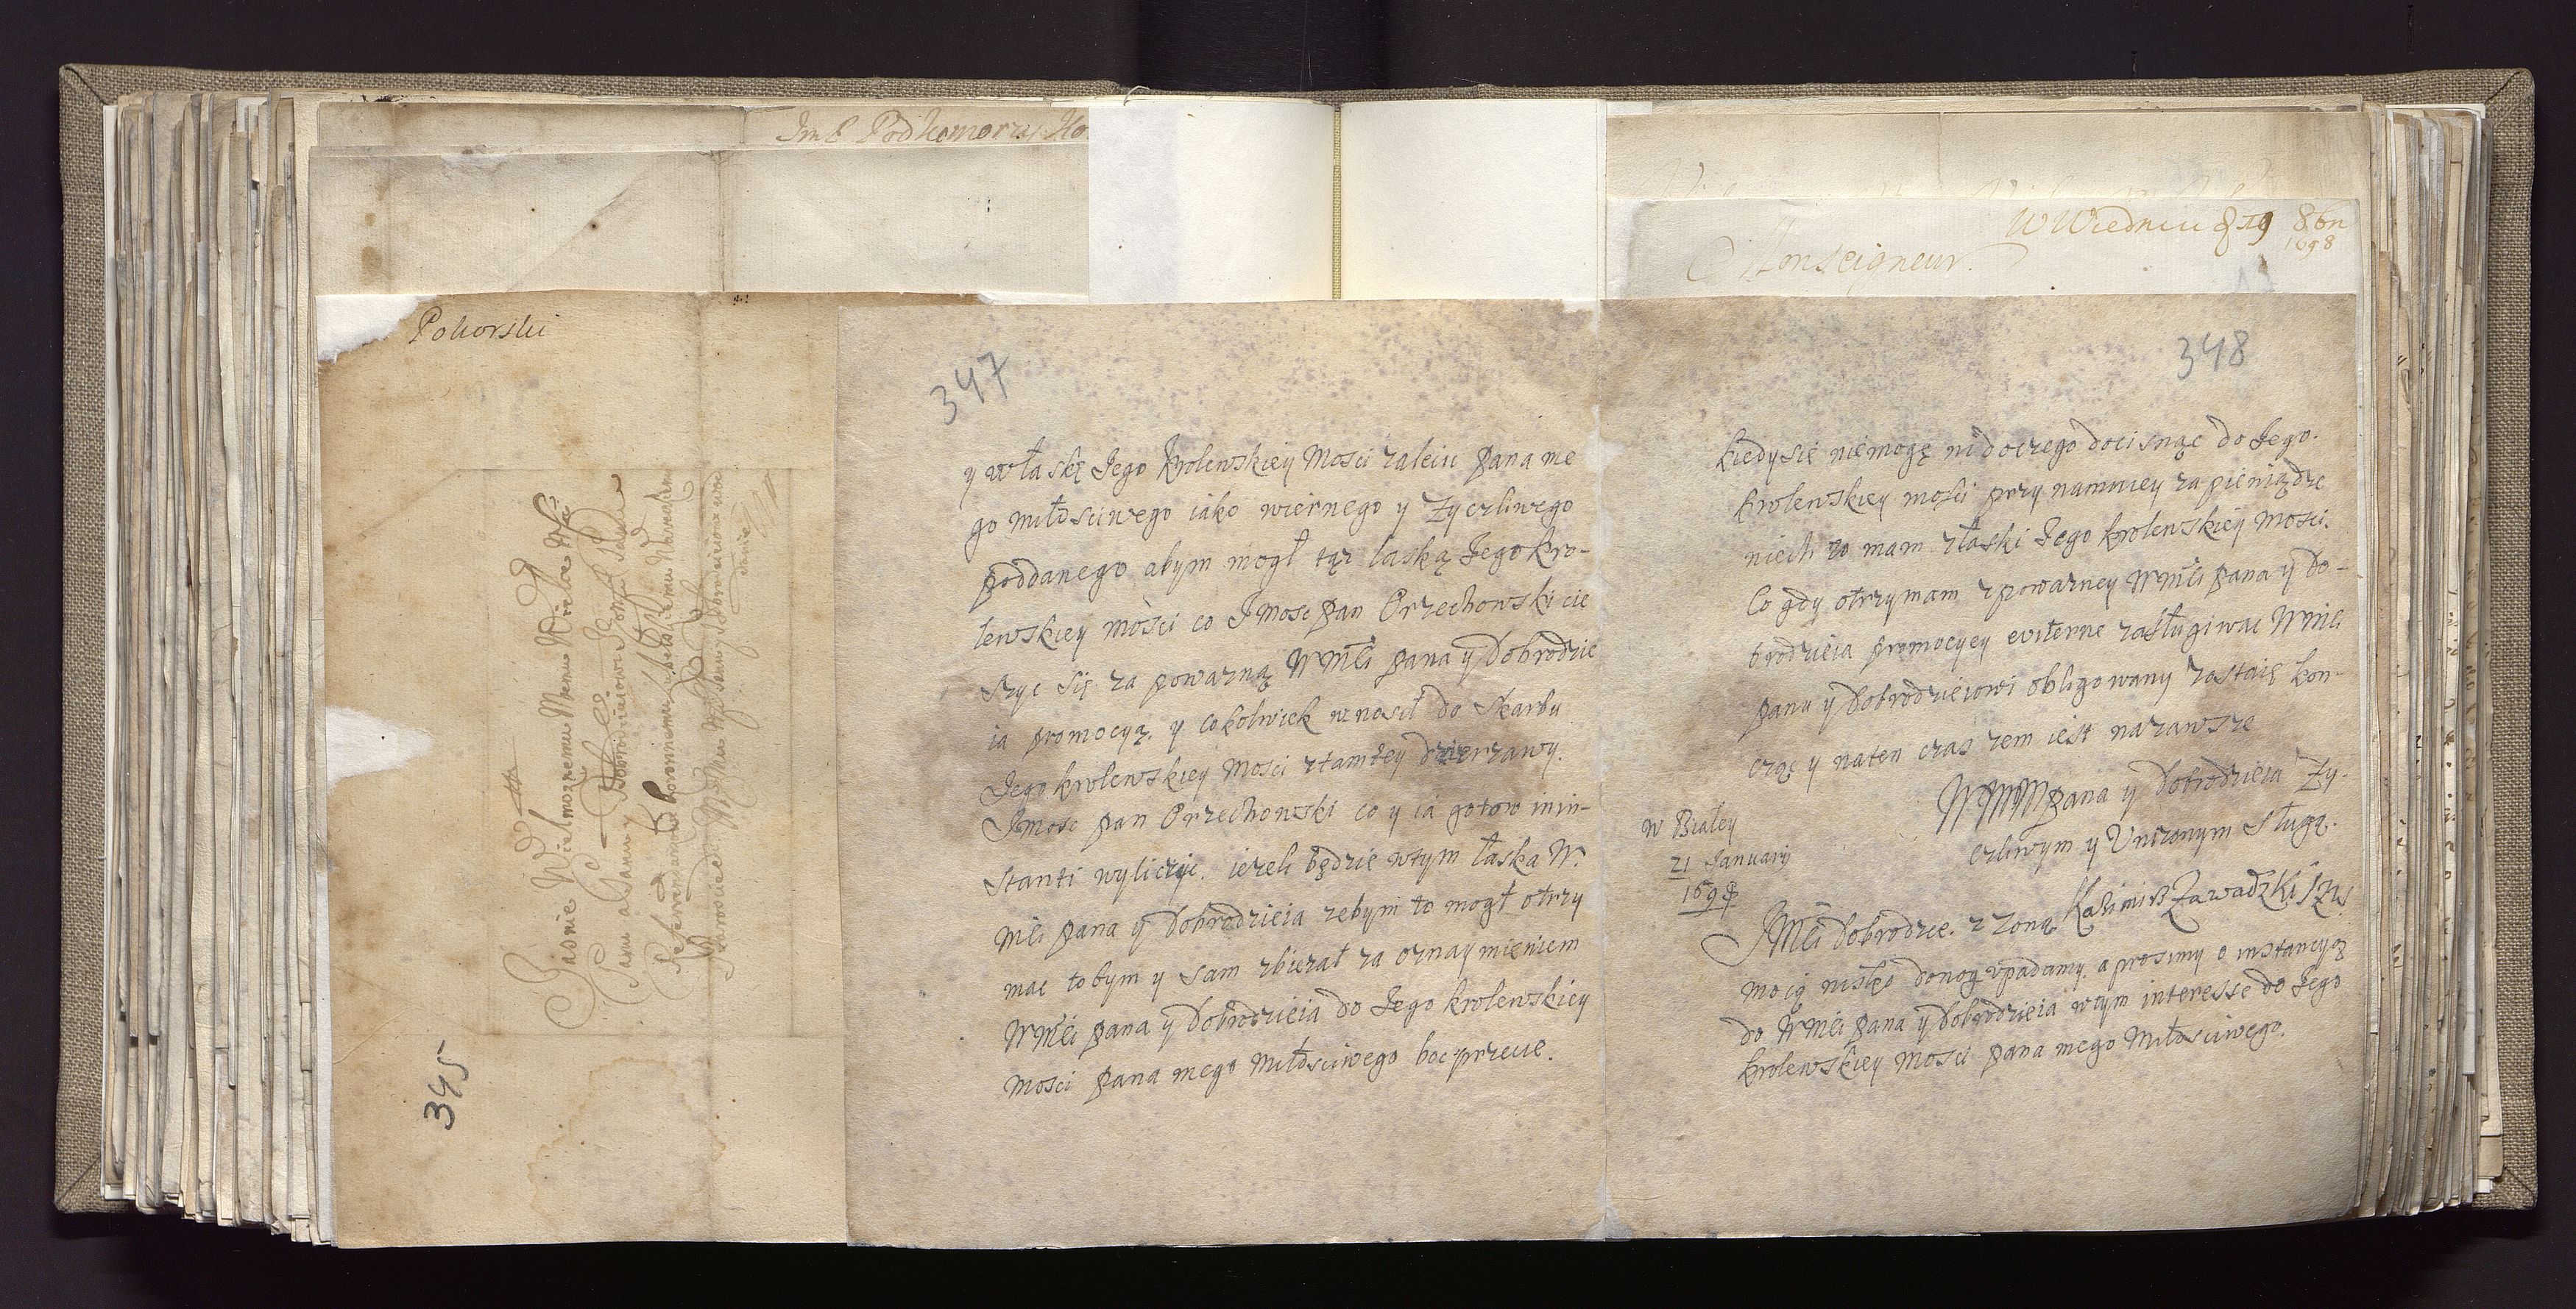 Im P Podkomorzy Ko
Pokorski
345
Jasnie Wielmoznemu Memu Wielce Msci
Panu a Panu y Dobrodzieiowi Jemsci Panu
Referendarzowi Koronnemu
Staroscie Memu Msci Panu y Dobrodzieiowi
danie
347
y właskę Jego krolewskiey Mosci zalecic Pana me
go miłosciwego iako wiernego y Zyczliwego
poddanego abym mogł tąz laską Jego kro-
lewskiey mosci co Jmosc Pan Orzechowski cie
szyc się za powazną WMsci Pana y Dobrodzie
ia promocyą. y cokolwiek wnosił do Skarbu
Jego krolewskiey Mosci ztamtey dzierzawy.
Jmosc Pan Orzechowski co y ia gotow inin-
stanti wyliczyc. iezeli będzie wtym łaska W.
Msci Pana y Dobrodzieia zebym to mogł otrzy
mac tobym y sam zbierał za oznaymieniem
WMsci Pana y Dobrodzieia do Jego krolewskiey
Mosci Pana mego Miłosciwego boc przecie.
W Wiedniu 19 8bn
1698
Monseigneur.
348
kiedysię niemogę nidoczego docisnąc do Jego.
krolewskiey mosci przynamniey za pieniądze
niech to mam złaski Jego krolewskiey Mosci.
Co gdy otrzymam zpowazney WMsci Pana y Do-
brodzieia promocyey eviterne zasługiwac WMsci
Panu y Dobrodzieiowi obligowany zostaię kon-
czę y naten czas zem iest nazawsze
WMMPana y Dobrodzieia Zy-
czliwym y Unizonym Sługą.
w Białey
21 January
169
Kazimirz Zawadzki
JMsci Dobrodzce. z Zoną
moią nisko donog upadamy. a prosimy o instancyą
do WMsci Pana y Dobrodzieia wtym interesse do Jego
krolewskiey Mosci Pana mego Miłosciwego.